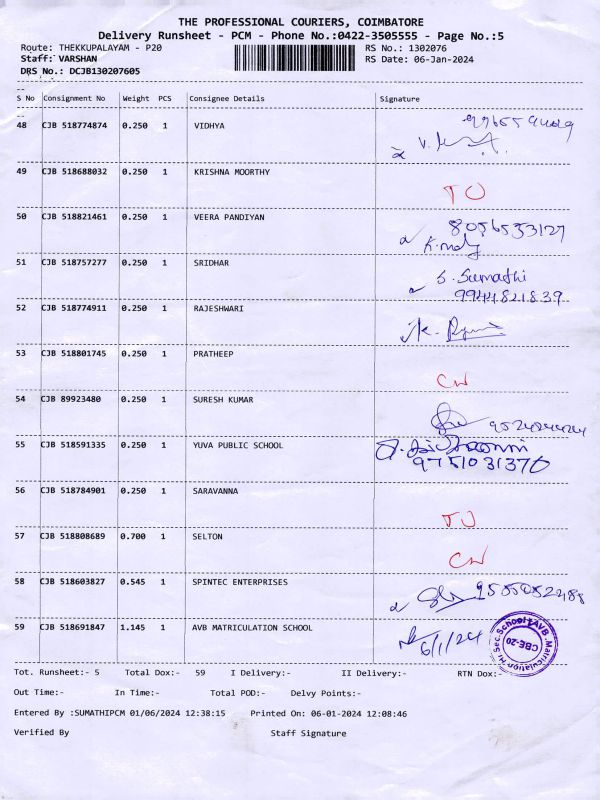 THE PROFESSIONAL COURIERS, COIMBATORE
Delivery Runsheet - PCM - Phone No.:0422-3505555 - Page No.:5
Route: THEKKUPALAYAM - P20 RS No.: 1302076
Staff: VARSHAN RS Date: 06-Jan-2024
DRS No.: DCJB130207605
S No Consignment No Weight PCS Consignee Details Signature
48 CJB 518774874 0.250 1 VIDHYA
49 CJB 518688032 0.250 1 KRISHNA MOORTHY
50 CJB 518821461 0.250 1 VEERA PANDIYAN 8056533127
51 CJB 518757277 0.250 1 SRIDHAR S. Sumathi
9944821839
52 CJB 518774911 0.250 1 RAJESHWARI
53 CJB 518801745 0.250 1 PRATHEEP
54 CJB 89923480 0.250 1 SURESH KUMAR
55 CJB 518591335 0.250 1 YUVA PUBLIC SCHOOL
9751031370
56 CJB 518784901 0.250 1 SARAVANNA
57 CJB 518808689 0.700 1 SELTON
58 CJB 518603827 0.545 1 SPINTEC ENTERPRISES
59 CJB 518691847 1.145 1 AVB MATRICULATION SCHOOL 6/1/24
AVB Matriculation Hr Sec. School
CBE-20
Tot. Runsheet:- 5 Total Dox:- 59 I Delivery:- II Delivery:- RTN Dox:-
Out Time:- In Time:- Total POD:- Delvy Points:-
Entered By :SUMATHIPCM 01/06/2024 12:38:15 Printed On: 06-01-2024 12:08:46
Verified By Staff Signature